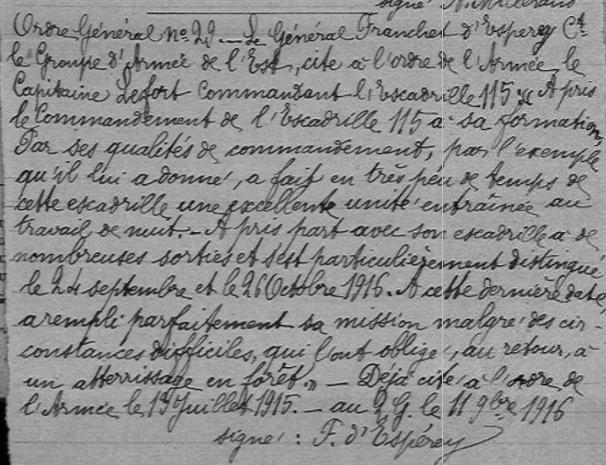 signé A. Millerand
Ordre Général nº 29. _ Le Général Franchet d'Esperey Ct
le Groupe d'Armée de l'Est, cite à l'ordre de l'Armée, le
Capitaine Lefort Commandant l'Escadrille 115 "A pris
le Commandement de l'Escadrille 115 à sa formation,
Par ses qualités de commandement, par l'exemple
qu'il lui a donné, a fait en très peu de temps de
cette escadrille une excellente unité entraînée au
travail de nuit. _ A pris part avec son escadrille à de
nombreuses sorties et s'est particulièrement distingué
le 24 septembre et le 26 Octobre 1916. A cette dernière date,
a rempli parfaitement sa mission malgré des cir-
constances difficiles, qui l'ont obligé, au retour, à
un atterrissage en forêt." _ Déjà cité à l'ordre de
l'Armée le 13 Juillet 1915. _ au Q.G. le 11 9bre 1916
signé : F. d'Espérey